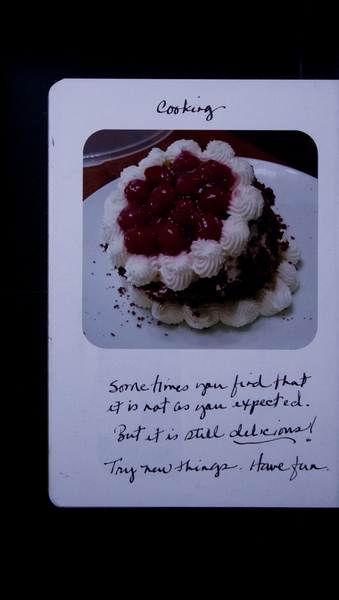 Cooking
Sometimes you find that
it is not as you expected.
But it is still delicious!
Try new things. Have fun.